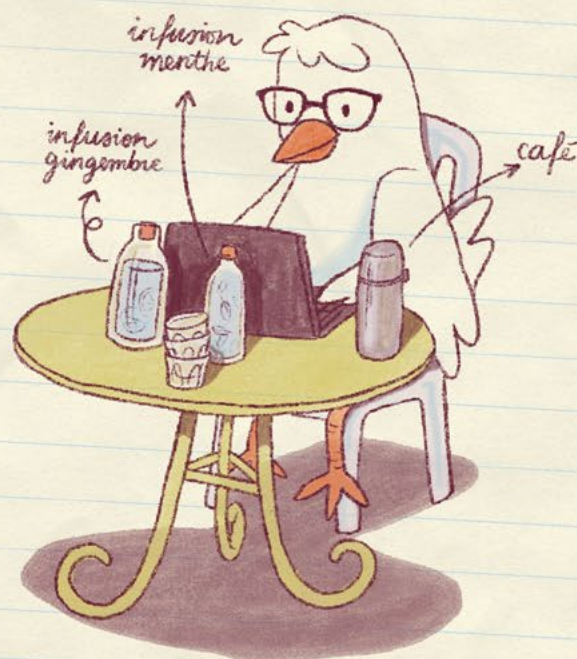 infusion
menthe
infusion
gingembre
café